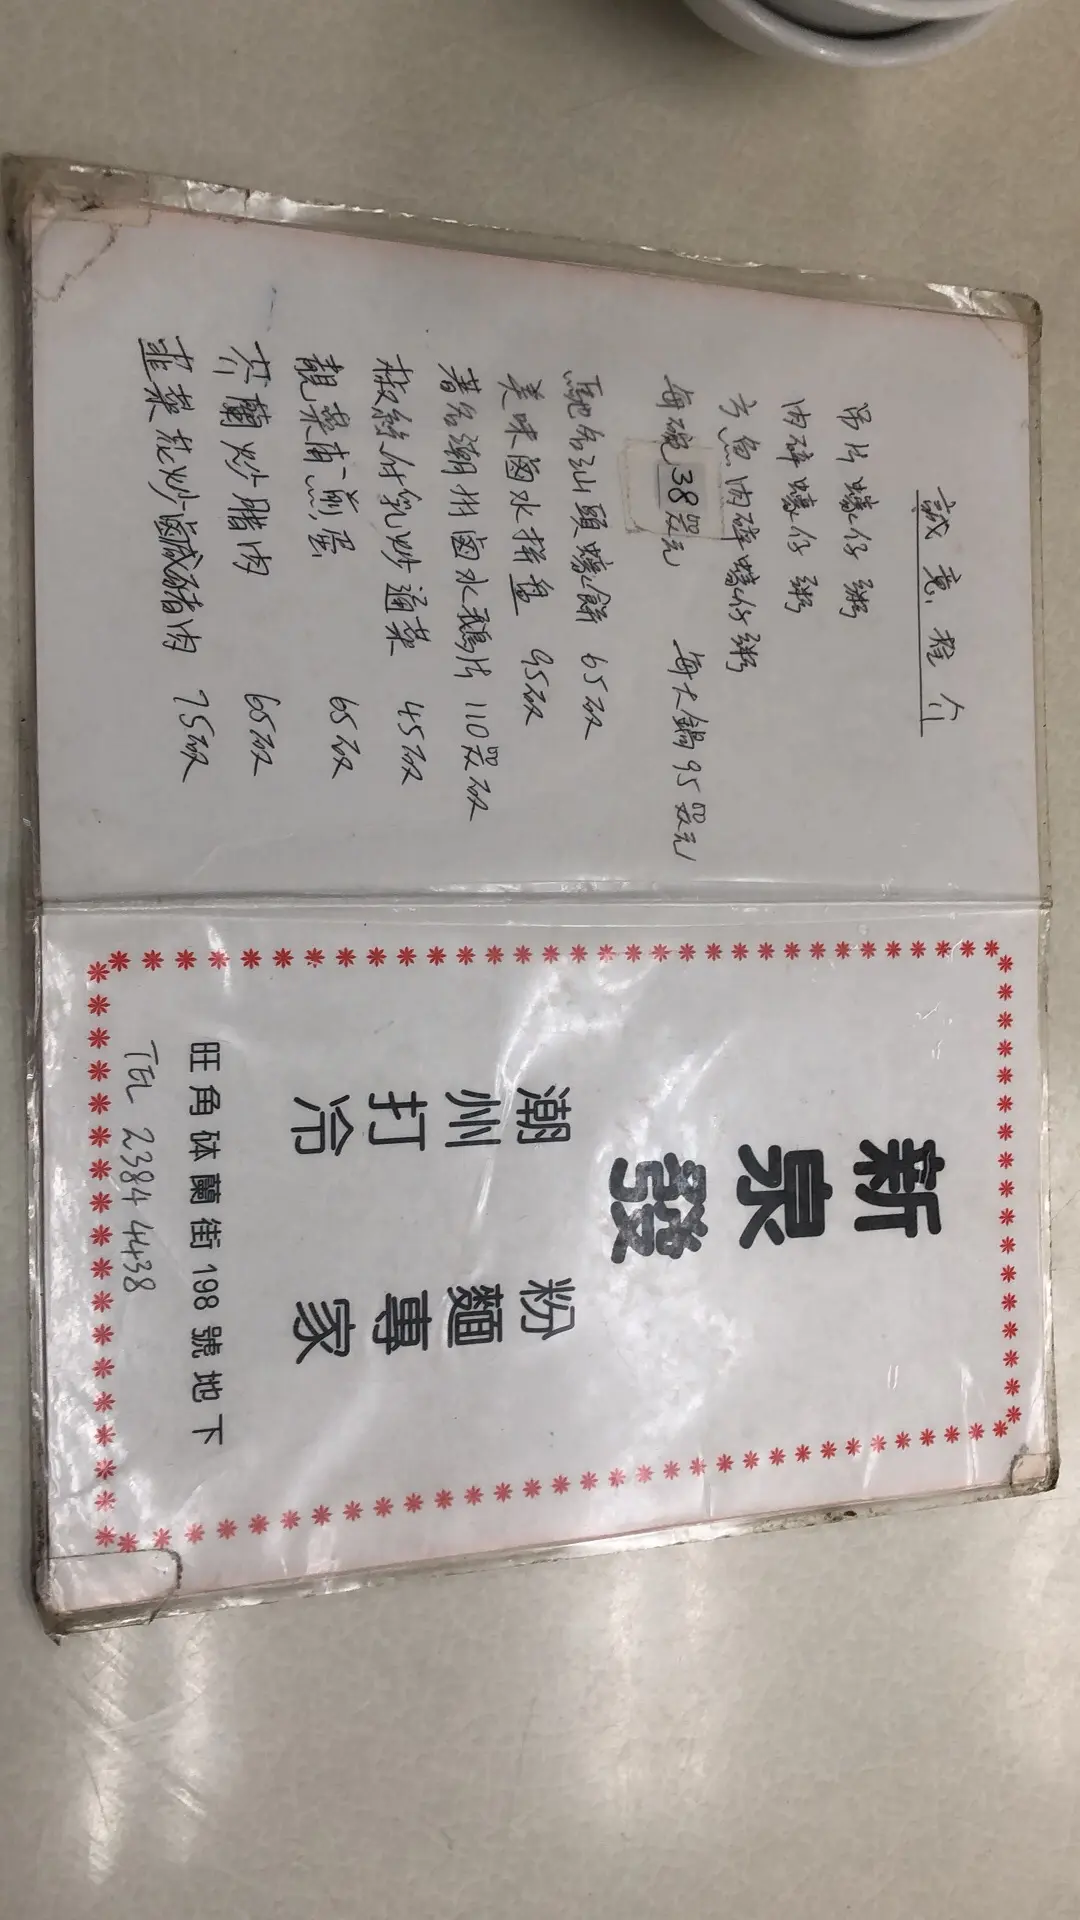 誠意推介
片蠔仔粥
肉碎蠔仔粥
方魚肉碎蠔仔粥
每碗38單元 每大鍋95單元
馳名汕頭蠔餅 65
美味鹵水拼盤 95
著名潮州鹵水鵝片 110
椒絲付乳炒通菜 45
靚菜甫煎蛋 65
芥蘭炒腊肉 65
韮菜花炒鹹豬肉 75
新泉發
潮州打冷 粉麵專家
旺角砵蘭街198號地下
TEL 2384 4438